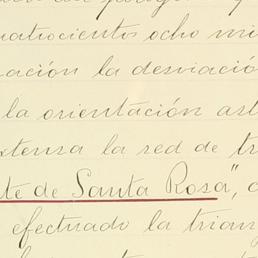 uatrocientos ocho mi
nación la desviació
la orientación ast
xtensa la red de tr
te de Santa Rosa",
efectuado la trian